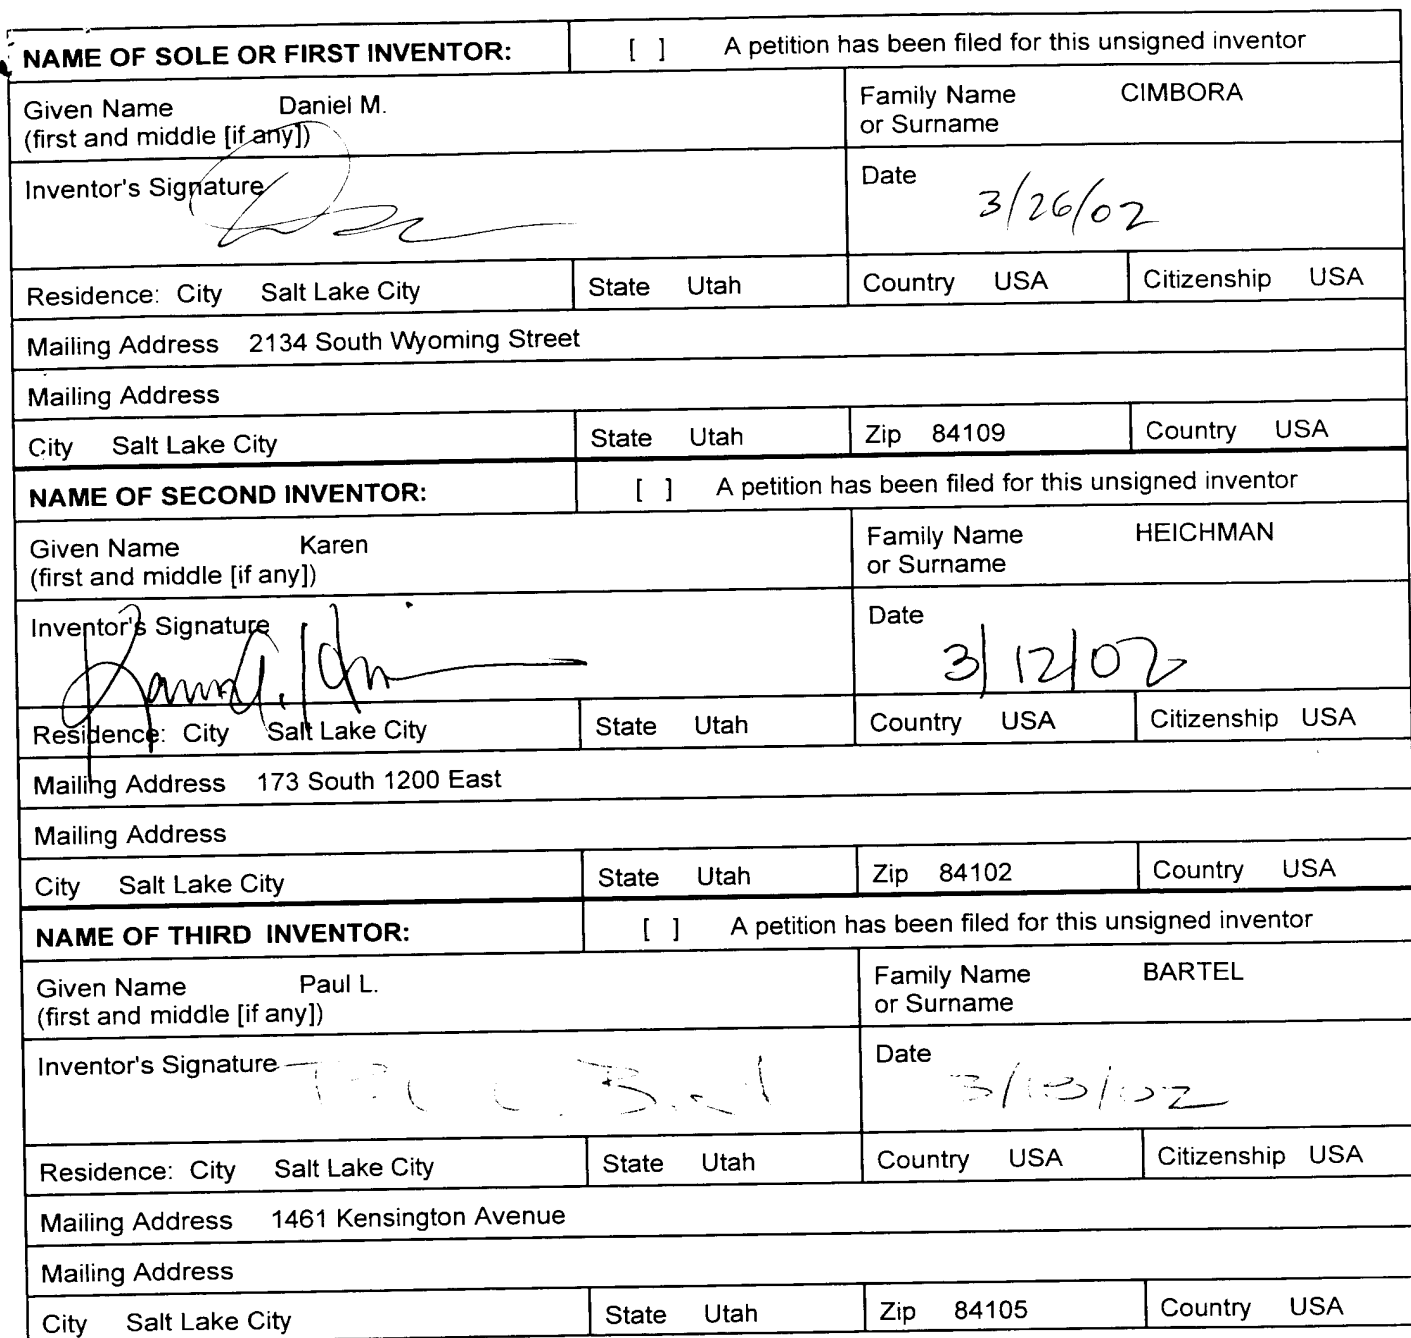 NAME OF SOLE OR FIRST INVENTOR: [ ] A petition has been filed for this unsigned inventor
Given Name Daniel M. Family Name CIMBORA
(first and middle [if any]) or Surname
Inventor's Signature Date 3/26/02
Residence: City Salt Lake City State Utah Country USA Citizenship USA
Mailing Address 2134 South Wyoming Street
Mailing Address
City Salt Lake City State Utah Zip 84109 Country USA
NAME OF SECOND INVENTOR: [ ] A petition has been filed for this unsigned inventor
Given Name Karen Family Name HEICHMAN
(first and middle [if any]) or Surname
Inventor's Signature Date 3/12/02
Residence: City Salt Lake City State Utah Country USA Citizenship USA
Mailing Address 173 South 1200 East
Mailing Address
City Salt Lake City State Utah Zip 84102 Country USA
NAME OF THIRD INVENTOR: [ ] A petition has been filed for this unsigned inventor
Given Name Paul L. Family Name BARTEL
(first and middle [if any]) or Surname
Inventor's Signature Date
Residence: City Salt Lake City State Utah Country USA Citizenship USA
Mailing Address 1461 Kensington Avenue
Mailing Address
City Salt Lake City State Utah Zip 84105 Country USA